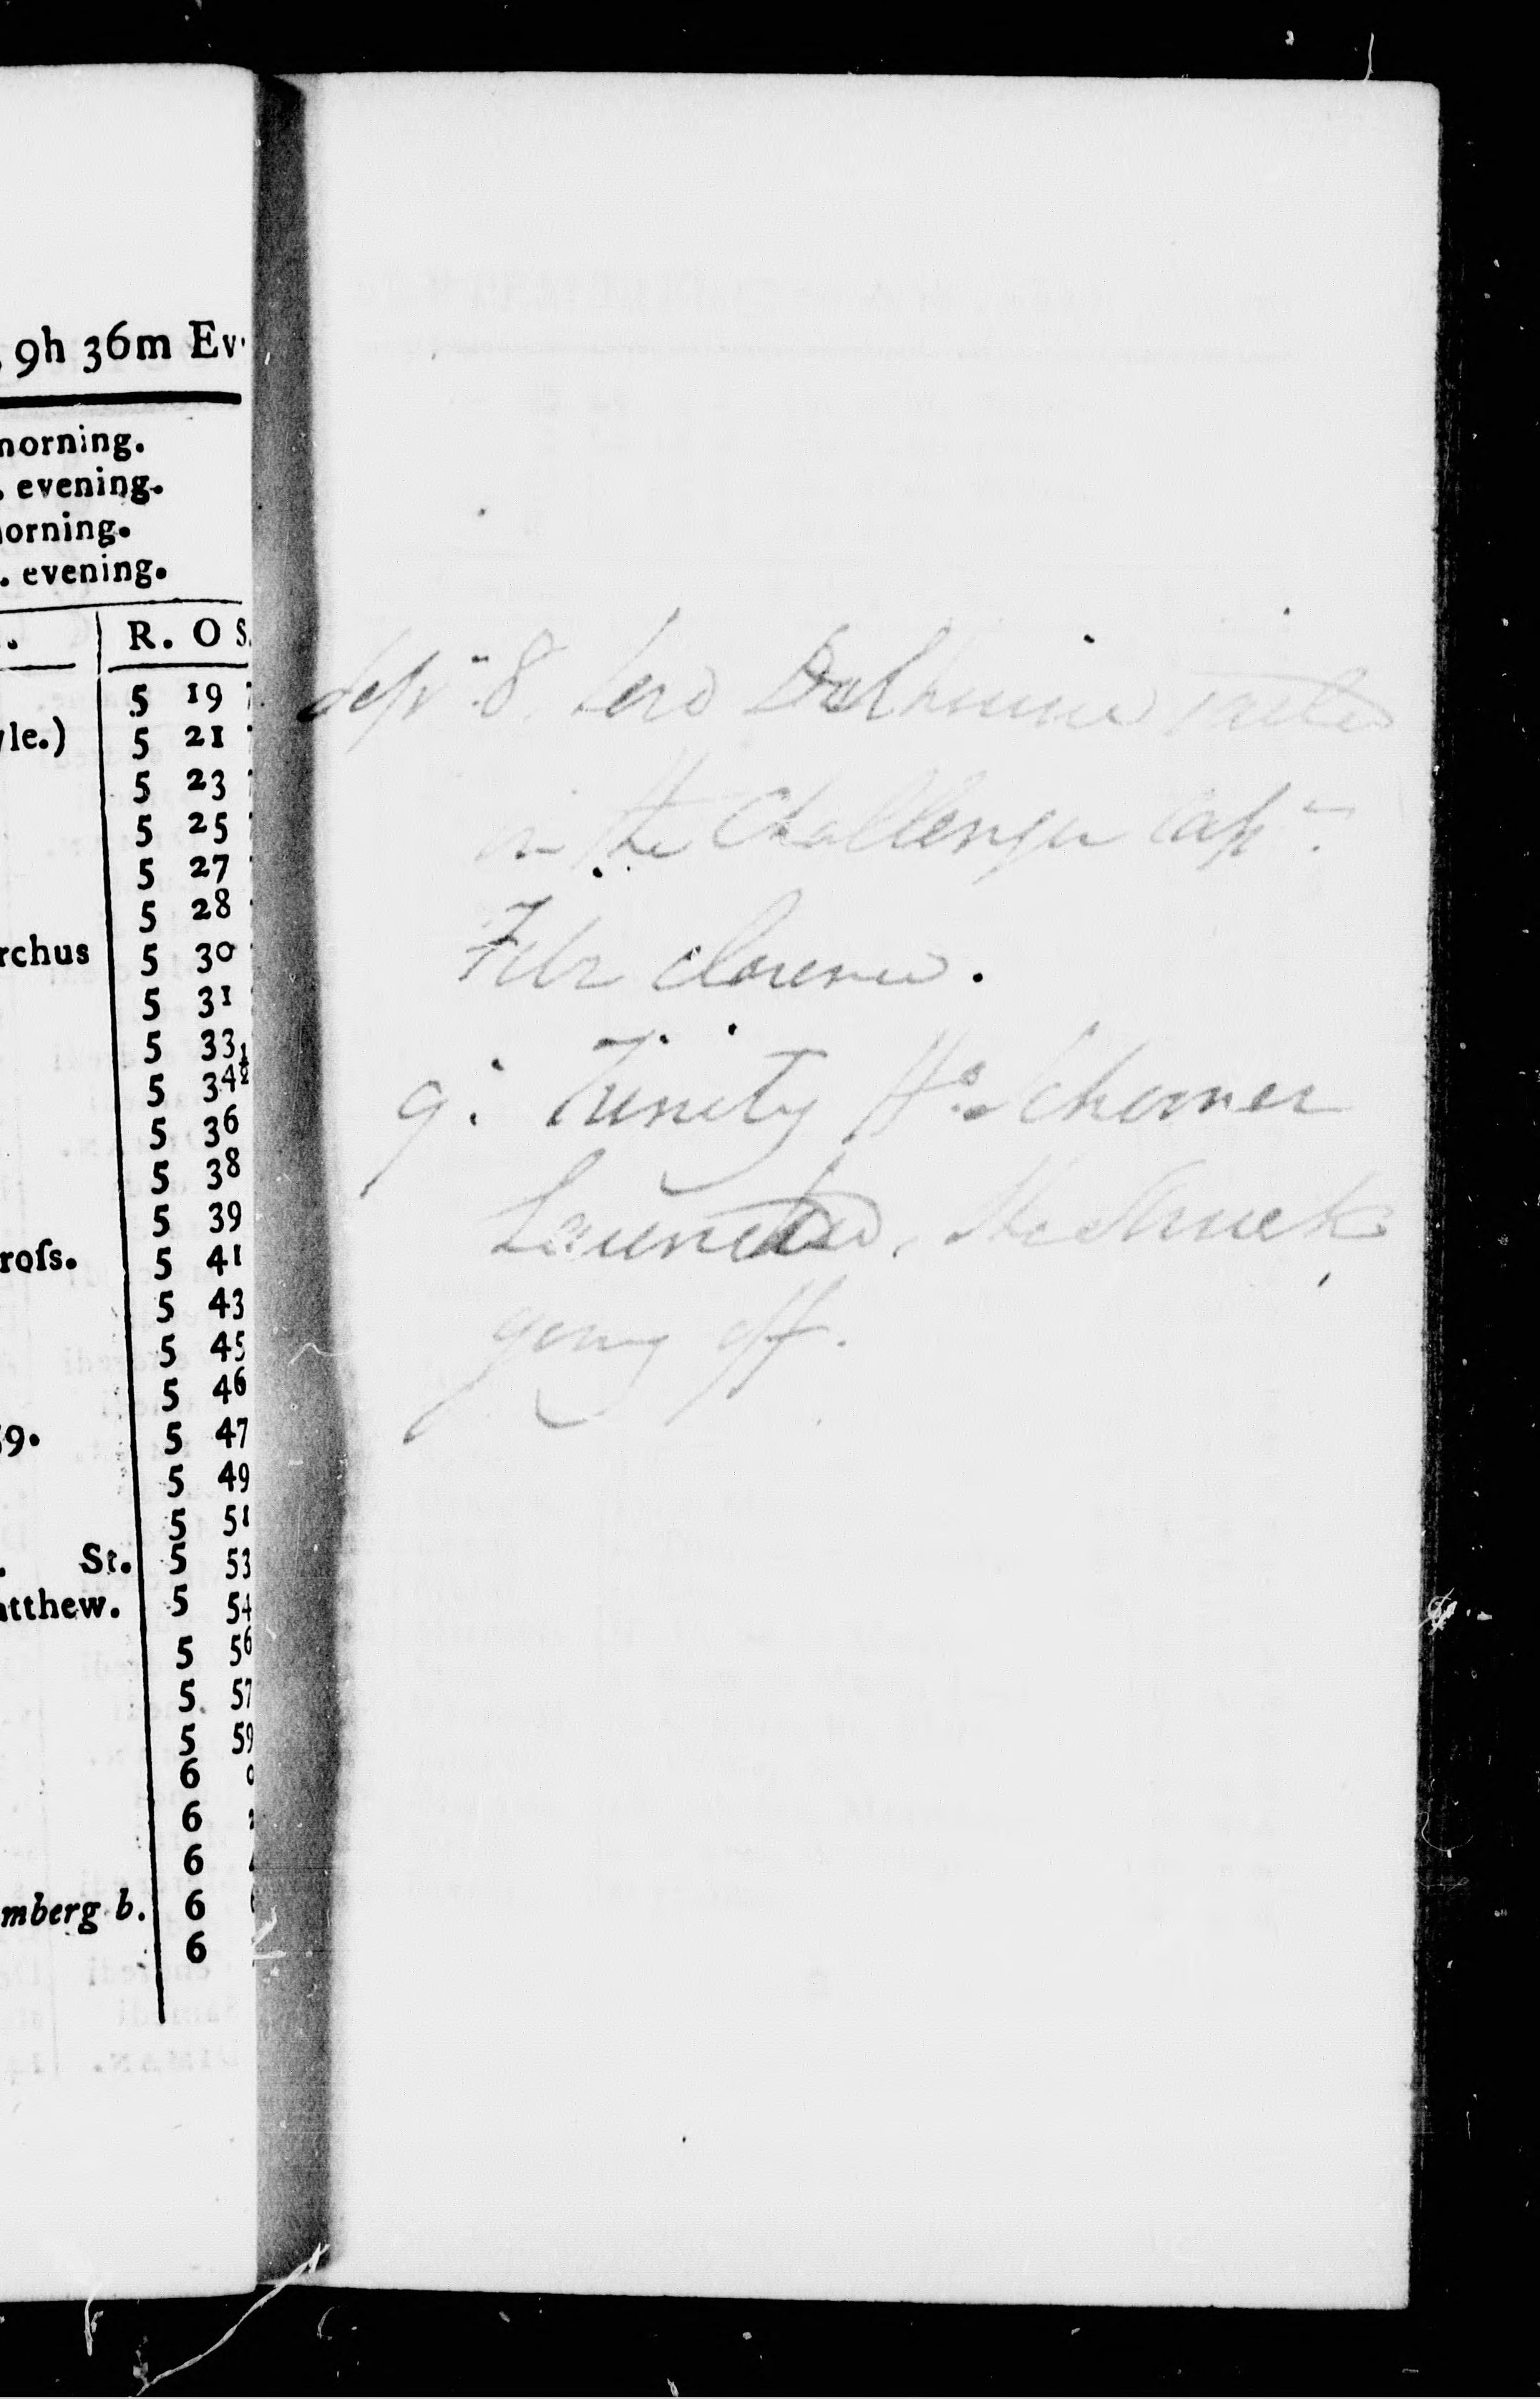 , 9h 36m Ev
morning.
. evening.
morning.
. evening.
R. O S
5 19
yle.) 5 21
5 23
5 25
5 27
5 28
rchus 5 30
5 31
5 33
5 34½
5 36
5 38
5 39
roſs. 5 41
5 43
5 45
5 46
59. 5 47
5 49
5 51
. St. 5 53
atthew. 5 54
5 56
5 57
5 59
6 0
6
6
mberg b. 6
6
Sepr 8. Lord Dalhousie sailed
in the Challenger Capn.
Fitz Clarence.
9. Trinity Ho Schooner
Launched, She Struck
going off.